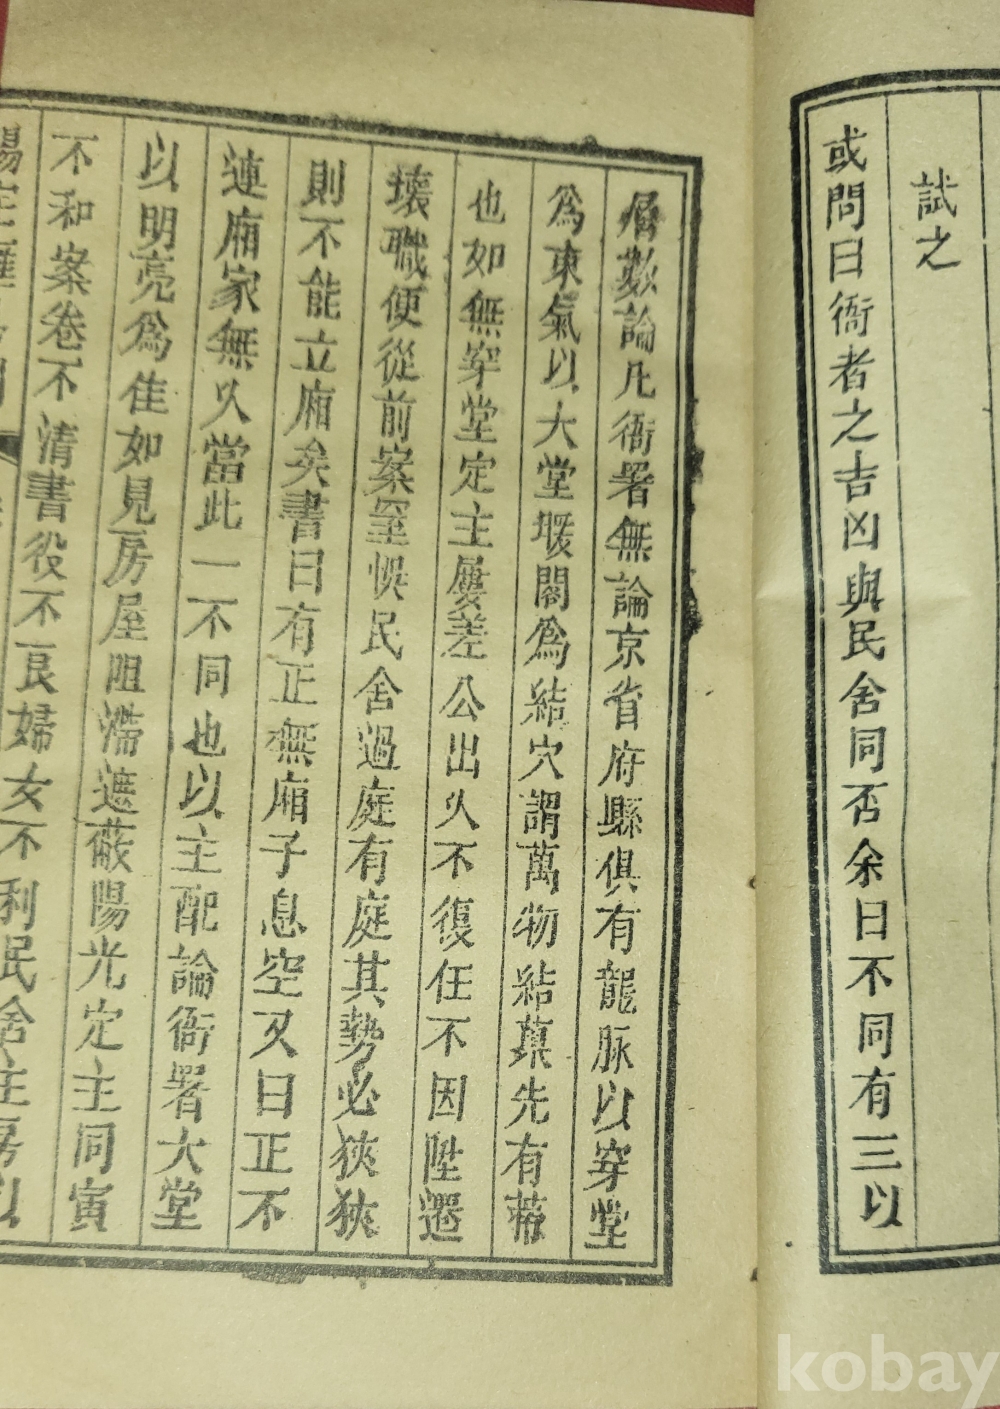 試之
或問曰衙者之吉凶與民舍同否余曰不同有三以
層數論凡衙署無論京省府縣俱有龍脉以穿堂
為束氣以大堂煖閣為結穴謂萬物結菓先有蒂
也如無穿堂定主屢差公出久不復任不因陞遷
壞職便從前案罣悞民舍過庭有庭其勢必狹狹
則不能立廂矣書曰有正無廂子息空又曰正不
連廂家無久當此一不同也以主配論衙署大堂
以明亮為佳如見房屋阻滯遮蔽陽光定主同寅
不和案卷不清書役不良婦女不利民舍主房以
kobay